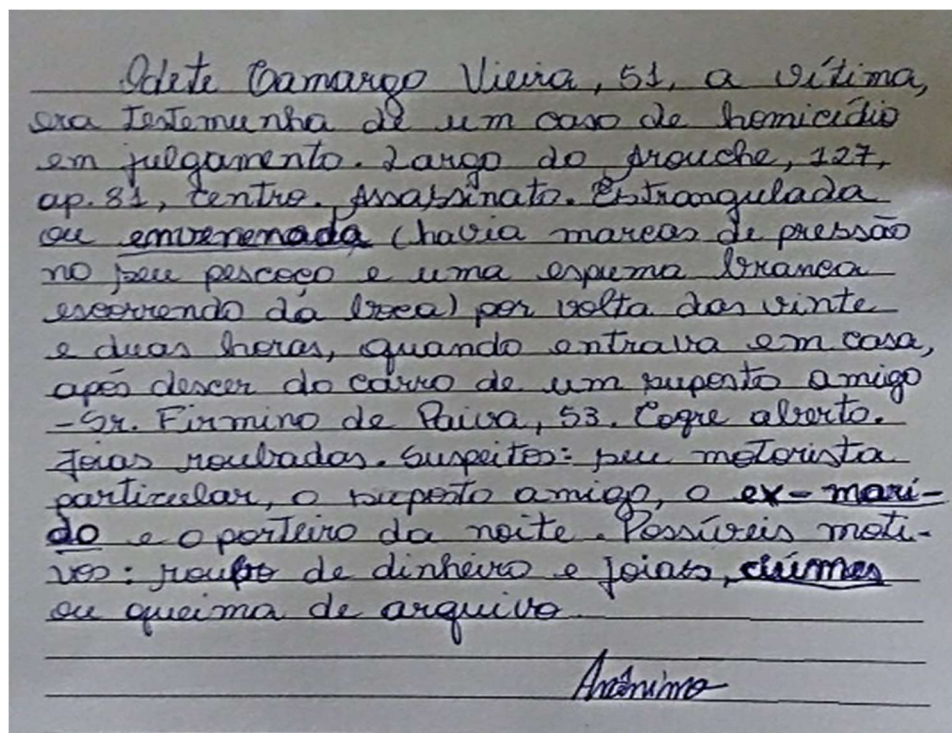 Odete Camargo Vieira, 51, a vítima,
era Testemunha de um caso de homicídio
em julgamento. Largo do Arouche, 127,
ap. 81, centro. Assassinato. Estrangulada
ou envenenada (havia marcas de pressão
no seu pescoço e uma espuma branca
escorrendo da boca) por volta das vinte
e duas horas, quando entrava em casa,
após descer do carro de um suposto amigo
- Sr. Firmino de Paiva, 53. Cofre aberto.
Joias roubadas. Suspeitos: seu motorista
particular, o suposto amigo, o ex-mari-
do e o porteiro da noite. Possíveis moti-
vos: roubo de dinheiro e joias, ciúmes
ou queima de arquivo.
Anônimo